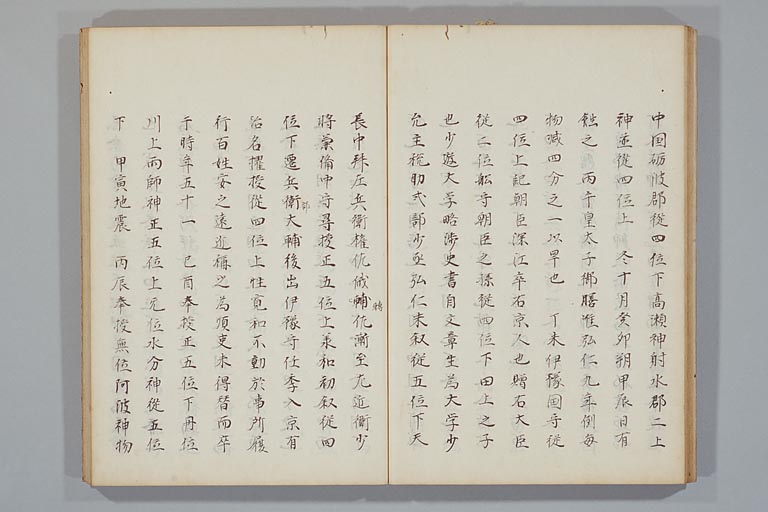 中国砺波郡従四位下高瀬神射水郡二上
神並従四位上　冬十月癸卯朔甲辰日有
蝕之　丙午皇太子御膳准弘仁九年例毎
物減四分之一以旱也　丁未伊豫国守従
四位上記朝臣深江卒右京人也贈右大臣
従二位舩守朝臣之孫従四位下田上之子
也少遊大学略渉史書自文章生為大学少
允主税助式部少丞弘仁末叙従五位下天
長中殊左兵衛権佐俄輔佐蘭至左近衛少
将兼備中守尋授正五位上承和初叙従四
位下遷兵衛大輔後出伊豫守任季入京有
治名擢授従四位上性寛和不動於事所履
行百姓安之遠近稱之為頃吏未得替而卒
于時年五十一　己酉奉授正五位下丹位
川上雨師神正五位上无位水分神従五位
下　甲寅地震　丙辰奉授無位阿波神物